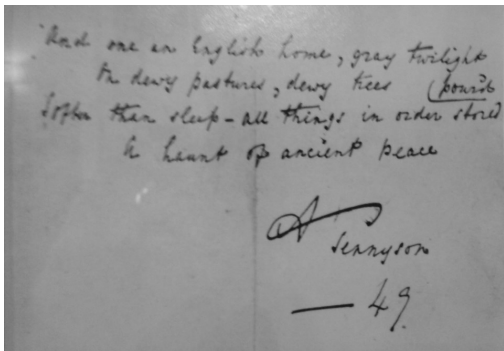 And one an English home, gray twilight
(pour'd
On dewy pastures, dewy trees
Softer than sleep - all things in order stored
A haunt of ancient peace
A
Tennyson
— 49